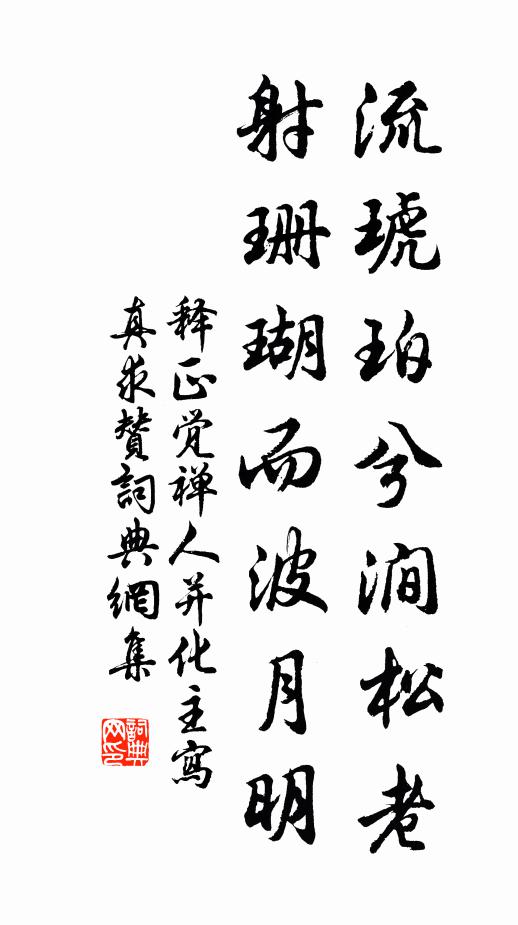 流琥珀兮涧松老
射珊瑚而波月明
释正觉禅人并化主寫
真求赞詞典網集
詞典
网印